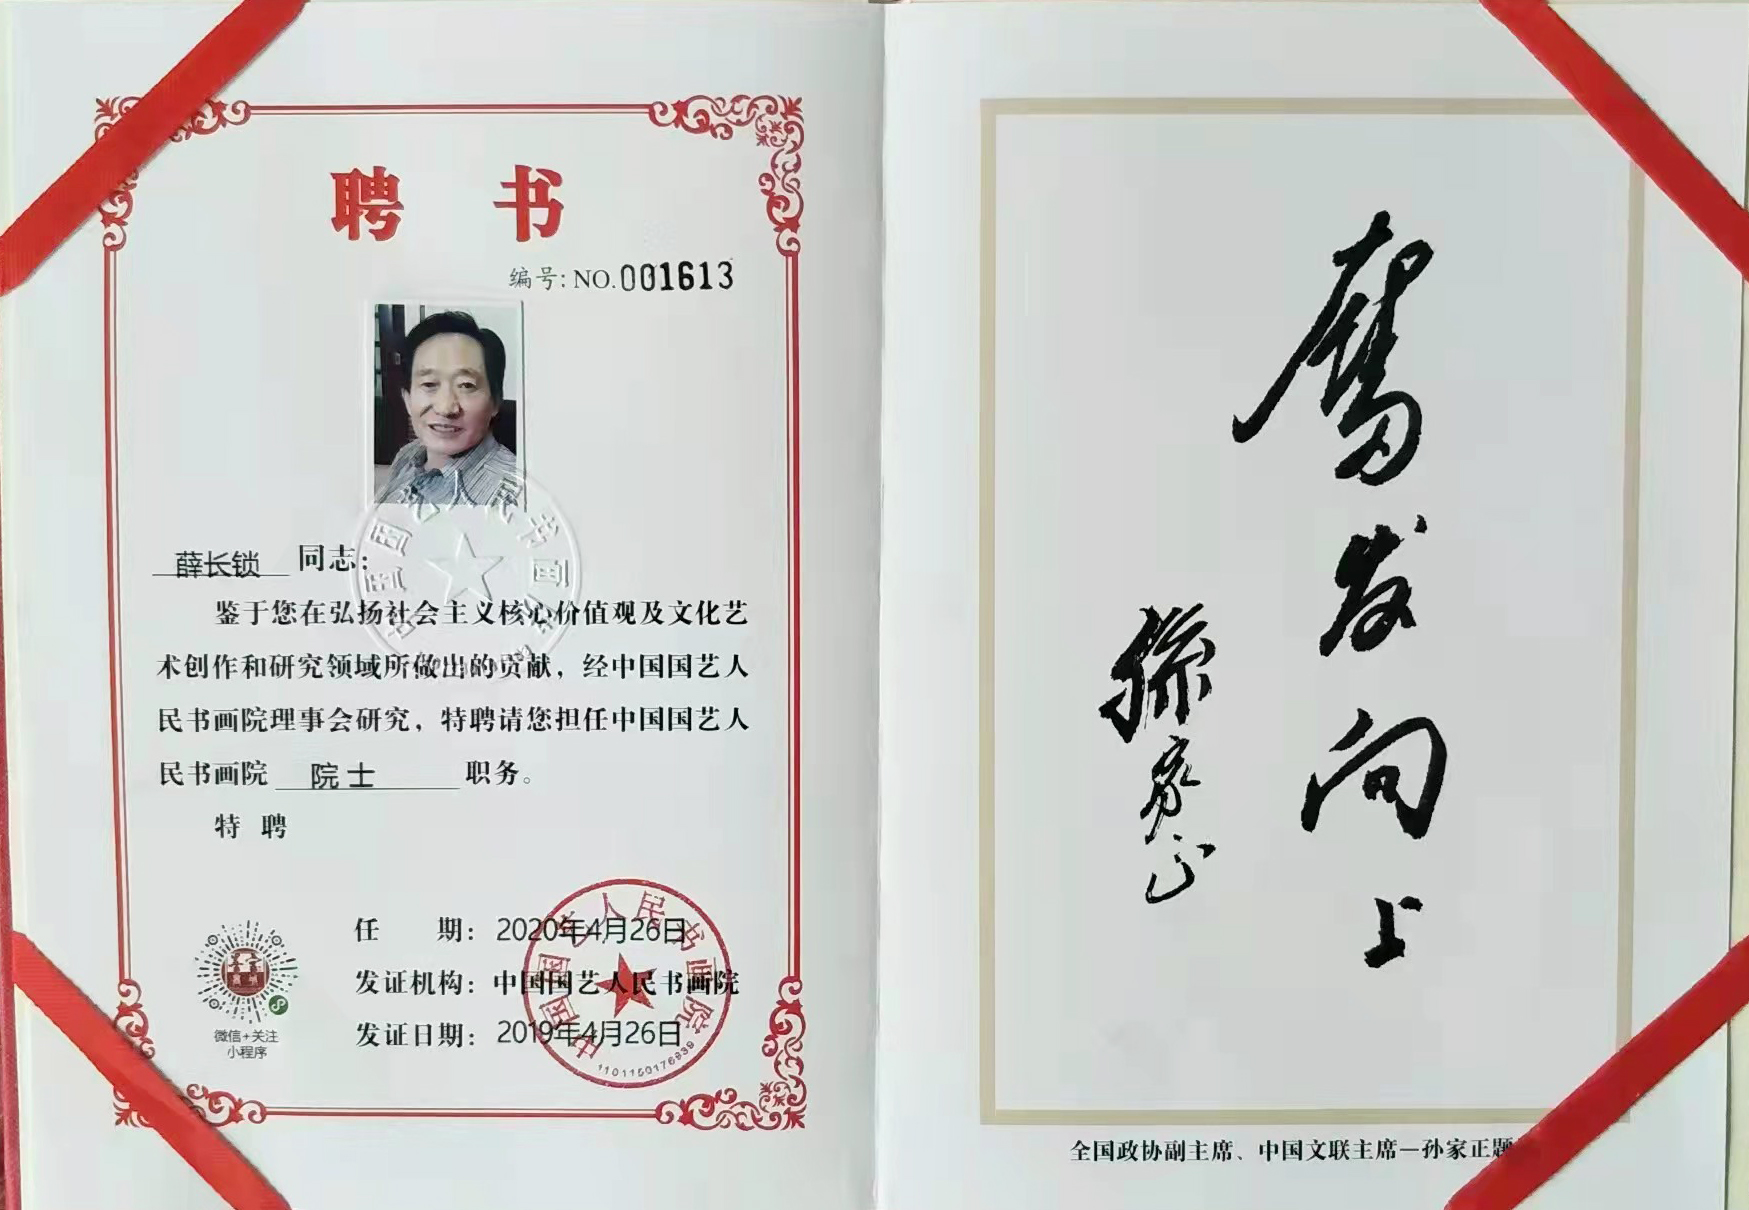 聘 书
编号: NO.001613
薛长锁 同志:
鉴于您在弘扬社会主义核心价值观及文化艺
术创作和研究领域所做出的贡献，经中国国艺人
民书画院理事会研究，特聘请您担任中国国艺人
民书画院 院士 职务。
特 聘
任 期: 2020年4月26日
发证机构: 中国国艺人民书画院
发证日期: 2019年4月26日
微信+关注
小程序
中国国艺人民书画院
中国国艺人民书画院
1101150176939
奮发向上
孫家正
全国政协副主席、中国文联主席—孙家正题